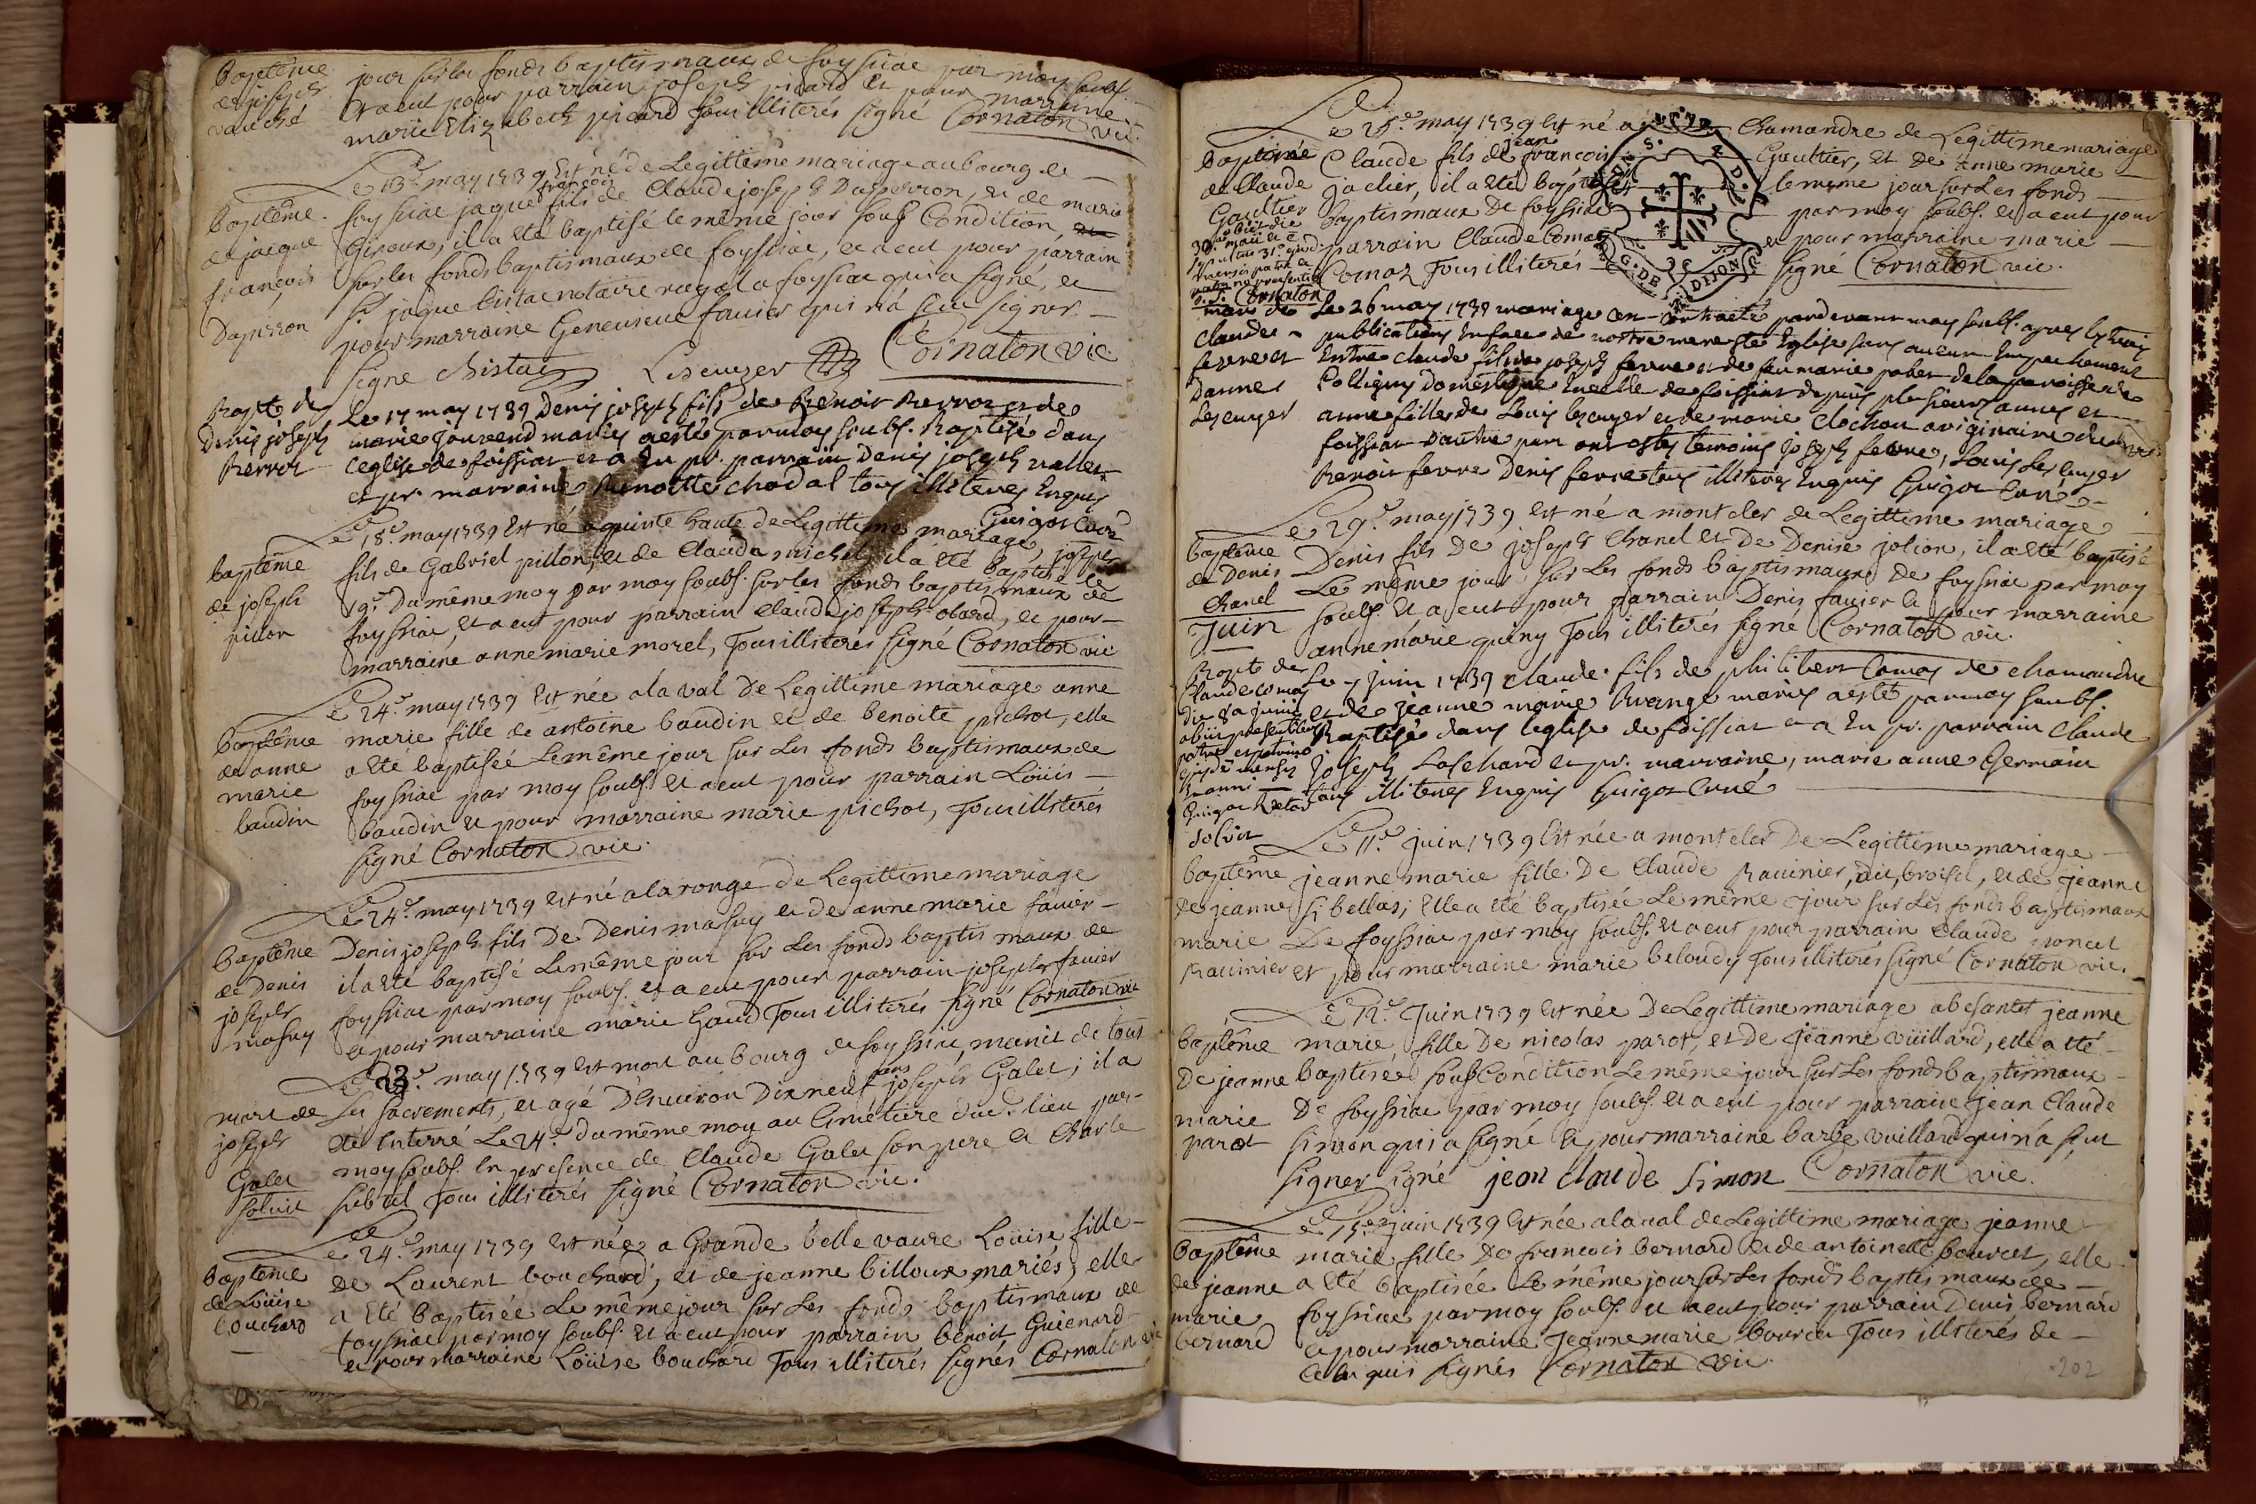 Baptême
de joseph
vauché
jour sur les fonds baptismaux de foyssiac par moy soubs.
et a eut pour parrain joseph picard et pour marraine
marie Elizabeth picard tous illiterés signé Cornaton vic.
Baptême
de jaque
françois
Daperron
Le 13e may 1739 Est né de Legittime mariage au bourg de
foyssiac jaque françois fils de Claude joseph Daperron, et de marie
Giroux, il a eté baptisé le même jour soub Condition,
sur les fonds baptismaux de foyssiac, et a eut pour parrain
Sr jaque Cistac notaire royal a foyssiac qui a signé, et
pour marraine Genevieve favier qui n'a sceu signer.
signé Cornaton vic
Bapt. de
Denis joseph
Perrot
Le 17 may 1739 Denis joseph fils de Benoit Perrot et de
marie Jouvend mariés a esté par moy soubs. Baptisé dans
l'eglise de foissiat et a Eu pr. parrain Denis joseph
et pr. marraine Benoitte chadal tous illiteres Enquis
Guigot Curé
baptême
de joseph
pillon
Le 18e may 1739 Est né a quinte haute de Legittime mariage joseph
fils de Gabriel pillon, et de Claude michel, il a eté baptisé le
19e Du même moy par moy soubs. sur les fonds baptismaux de
foyssiac, et a eut pour parrain Claude joseph obard, et pour
marraine anne marie morel, Tous illiterés signé Cornaton vic
baptême
de anne
marie
baudin
Le 24e may 1739 Est née a la val De Legittime mariage anne
marie fille de antoine baudin et de benoite pichot, elle
a eté baptisée Le même jour sur Les fonds baptismaux de
foyssiac par moy soubs. et a eut pour parrain Loüis
baudin et pour marraine marie pichot, Tous illiterés
signé Cornaton vic.
baptême
de Denis
joseph
masuy
Le 24e may 1739 Est né a la ronge de Legittime mariage
Denis joseph fils De Denis masuy et de anne marie favier
il a eté baptisé Le même jour sur Les fonds baptismaux de
foyssiac par moy soubs. et a eut pour parrain joseph favier
et pour marraine marie Gaud Tous illiterés signé Cornaton vic
mort de
joseph
Galet
solvit
Le 23e may 1739 Est mort au bourg de foyssiac, munit de tous
Les sacrements, et agé D'Environ Dix neuf ans joseph Galet; il a
eté Enterré Le 24e du même moy au Cimetiere dud. lieu par
moy soubs. En presence de Claude Galet son pere et Charle
Tous illiterés signé Cornaton vic.
baptême
de Loüise
bouchard
Le 24e may 1739 Est née a Grande belle vavre Loüise fille
De Laurent bouchard, et de jeanne billoux mariés, elle
a eté baptisée Le même jour sur Les fonds baptismaux de
foyssiac par moy soubs. et a eut pour parrain benoit Guienard
et pour marraine Loüise bouchard Tous illiterés signés Cornaton vic
Baptême
de Claude
Gaultier
Cornaton
Le 25e may 1739 Est né a Chamandre de Legittime mariage
Claude fils de jean françois Gaultier, et De anne marie
jaclier, il a eté baptisé le même jour sur Les fonds
baptismaux De foyssiac par moy soubs. et a eut pour
parrain Claude Comas et pour marraine marie
Cornaz Tous illiterés signé Cornaton vic.
G. DE DIJON
mari de
Claude
fevre et
Danne
Lescuyer
Le 26 may 1739 mariage Contracté pardevant moy soubs. apres les trois
publications En face de nostre mere ste Eglise sans aucun Empechement
Entre claude fils de joseph fevre et de feu marie pobet de la paroisse de
Colligny domestique En celle de foissiat depuis plusieurs années et
anne fille de Louis lescuyer et de marie Clochon originaire de
foissiat d'autre part ont estés temoins joseph fevre, Louis Lescuyer
Benoit fevre Denis fevre tous illiteres Enquis Guigot Curé
baptême
de Denis
Chanel
Le 29e may 1739 Est né a montcler de Legittime mariage
Denis fils De joseph Chanel et De Denise jolion, il a eté baptisé
Le même jour sur Les fonds baptismaux De foyssiac par moy
soubs. et a eut pour parrain Denis favier et pour marraine
anne marie quiny Tous illiterés signé Cornaton vic.
Juin
Bapt. de
Claude comas
Solvit
Le 7 juin 1739 Claude fils de philibert Comas de chamandre
et de jeanne marie Evange mariés a esté par moy soubs.
Baptisé dans l'eglise de foissiat et a Eu pr. parrain Claude
joseph Lachard et pr. marraine, marie anne Germain
tous illiteres Enquis Guigot Curé
baptême
de jeanne
marie
Ravinier
Le 11e juin 1739 Est née a montcler De Legittime mariage
jeanne marie fille De Claude Ravinier, dit, broisel, et de jeanne
sibellas; Elle a eté baptisée Le même jour sur Les fonds baptismaux
De foyssiac par moy soubs. et a eut pour parrain Claude poncet
et pour marraine marie belaudy Tous illiterés signé Cornaton vic.
baptême
De jeanne
marie
parot
Le 12e Juin 1739 Est née De Legittime mariage a besantet jeanne
marie, fille De nicolas parot, et De Jeanne vüillard, elle a eté
baptisée soub Condition Le même jour sur Les fonds baptismaux
De foyssiac par moy soubs. et a eut pour parrain Jean Claude
simon qui a signé et pour marraine barbe vuillard qui n'a sçut
signer signé jean claude simon Cornaton vic.
baptême
de jeanne
marie
bernard
Le 15e juin 1739 Est née a la val de Legittime mariage jeanne
marie fille De francois bernard et de antoinette bourcet, elle
a eté baptisée Le même jour sur Les fonds baptismaux de
foyssiac par moy soubs. et a eut pour parrain Denis bernard
et pour marraine Jeanne marie bourcet Tous illiterés de
ce Enquis signés Cornaton vic.
202